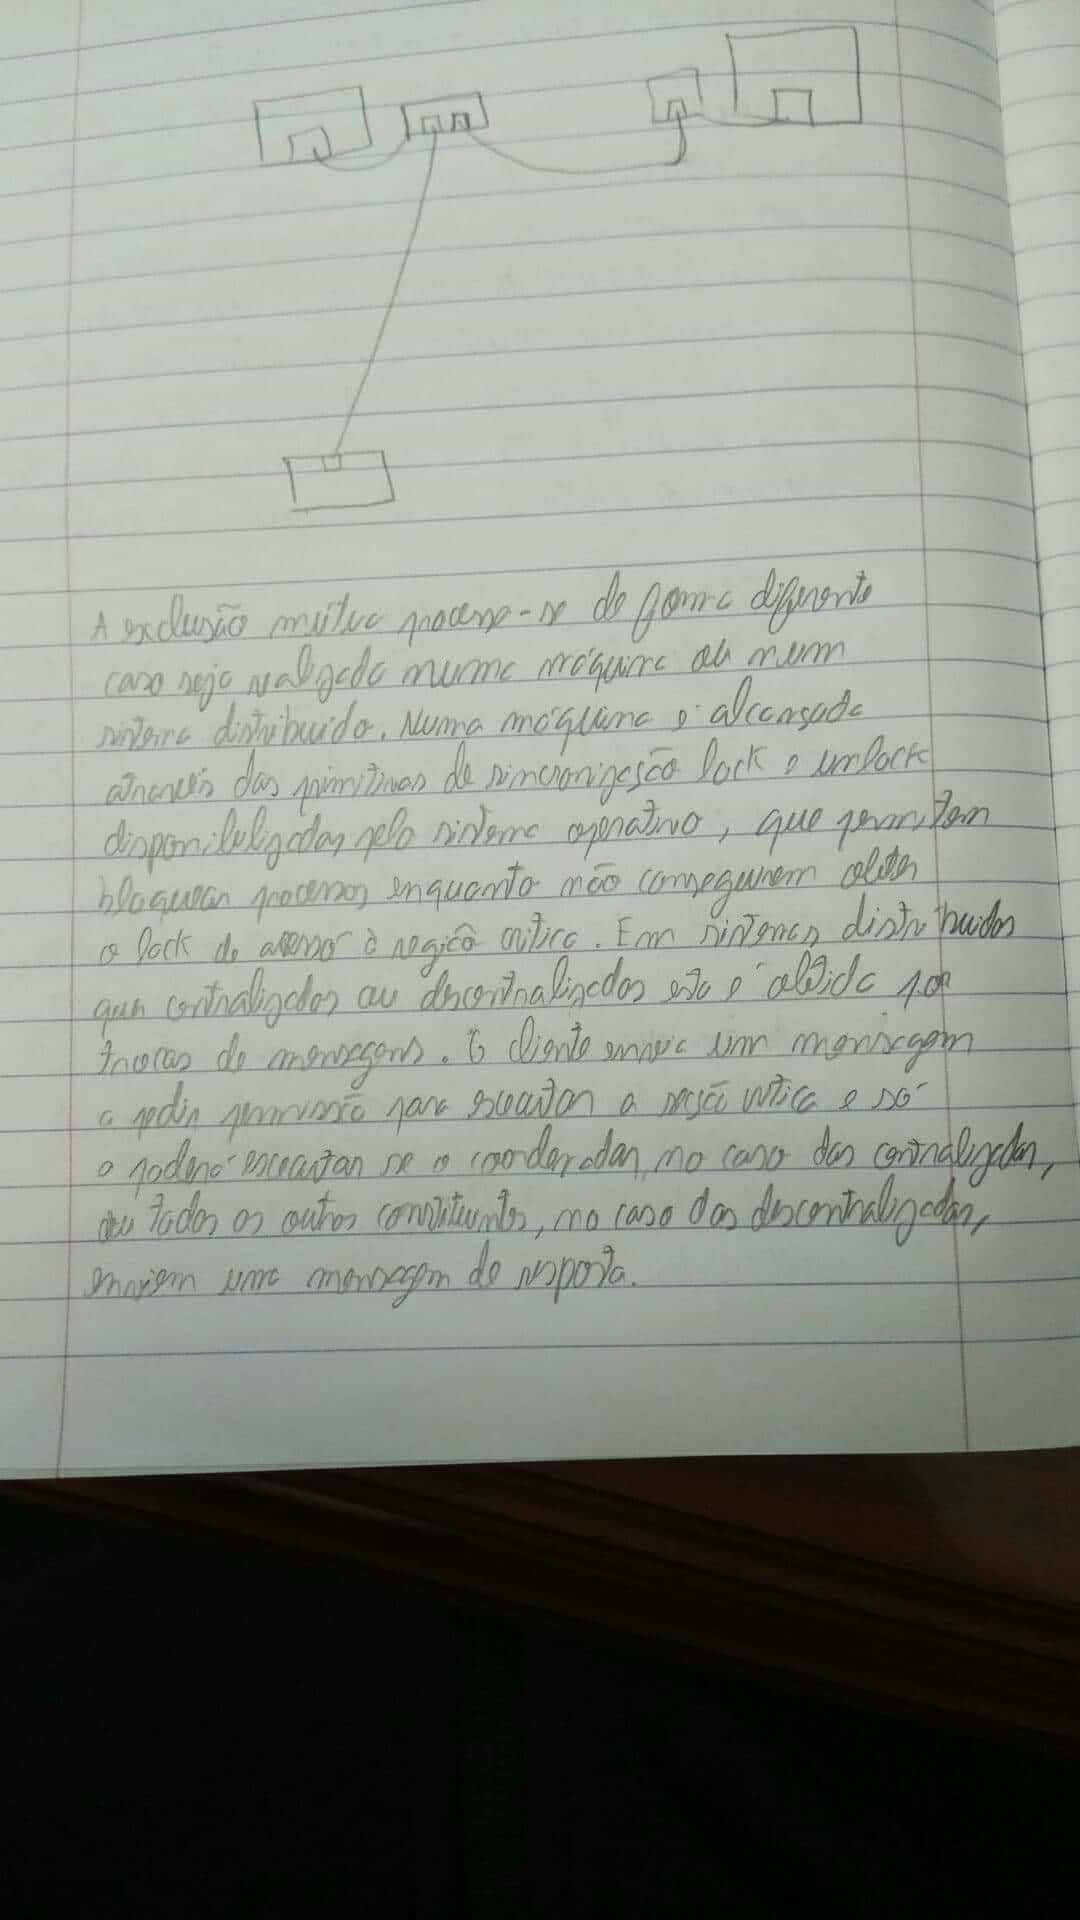 A exclusão mútua processa-se de forma diferente
caso seja realizada numa máquina ou num
sistema distribuido. Numa máquina é alcançada
através das primitivas de sincronização lock e unlock
disponibilizadas pelo sistema operativo, que permitem
bloquear processos enquanto não conseguirem obter
o lock de acesso à região critica. Em sistemas distribuidos
quer centralizados ou descentralizados esta é obtida por
trocas de mensagens. O cliente envia um mensagem
a pedir permissão para executar a secção critica e só
o poderá executar se o coordenador, no caso das centralizadas,
ou todos os outros constituintes, no caso das descentralizadas,
enviem uma mensagem de resposta.